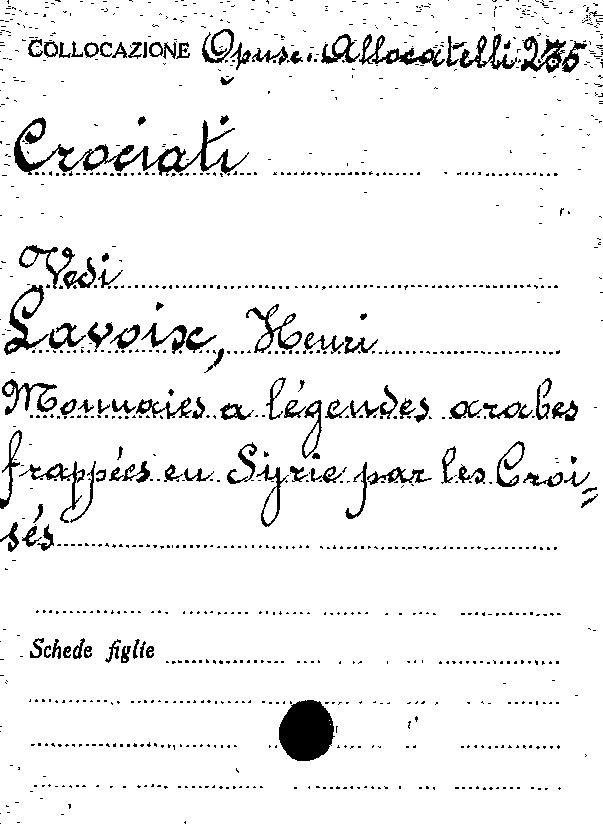 COLLOCAZIONE Opusc. Allocatelli 235
Crociati
Vedi
Lavoix, Henri
Monnaies a légendes arabes
frappées en Syrie par les Croi=
sés
Schede figlie